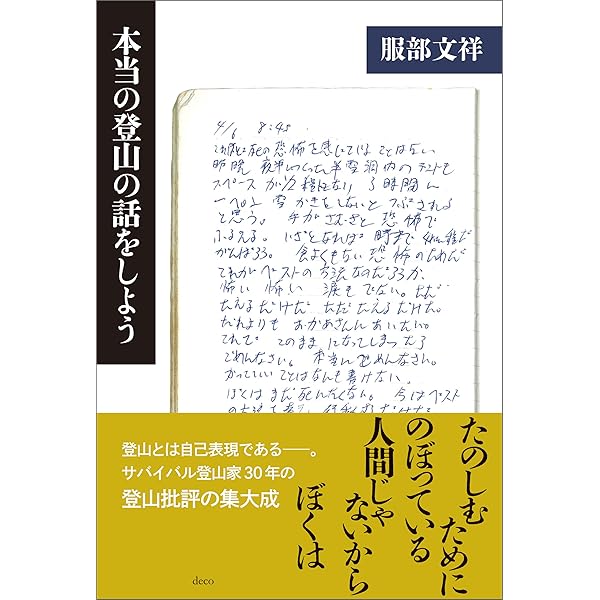 服部文祥
本当の登山の話をしよう
4/6 8:45
これほど死の恐怖を感じていることはない
昨晩、夜半につくった半雪洞内のテントも
スペースが1/2程になり 3時間に
一ぺん 雪かきをしないとつぶされる
と思う。 手がさむさと恐怖で
ふるえる。いざとなれば
がんばろう。 食よくもない 恐怖のためだ
これがベストの方法なのだろうか
怖い 怖い 涙もでない。ただ
たえるだけだ ただ たえるだけだ。
だれよりも おかあさんに あいたい。
それで このまま になってしまったら
ごめんなさい。 本当にごめんなさい。
かっていいことはなんも書けない。
ぼくはまだ死にたくない。 今はベスト
の方法を
たのしむために
のぼっている
人間じゃ
ないから
ぼくは
登山とは自己表現である──。
サバイバル登山家30年の
登山批評の集大成
deco